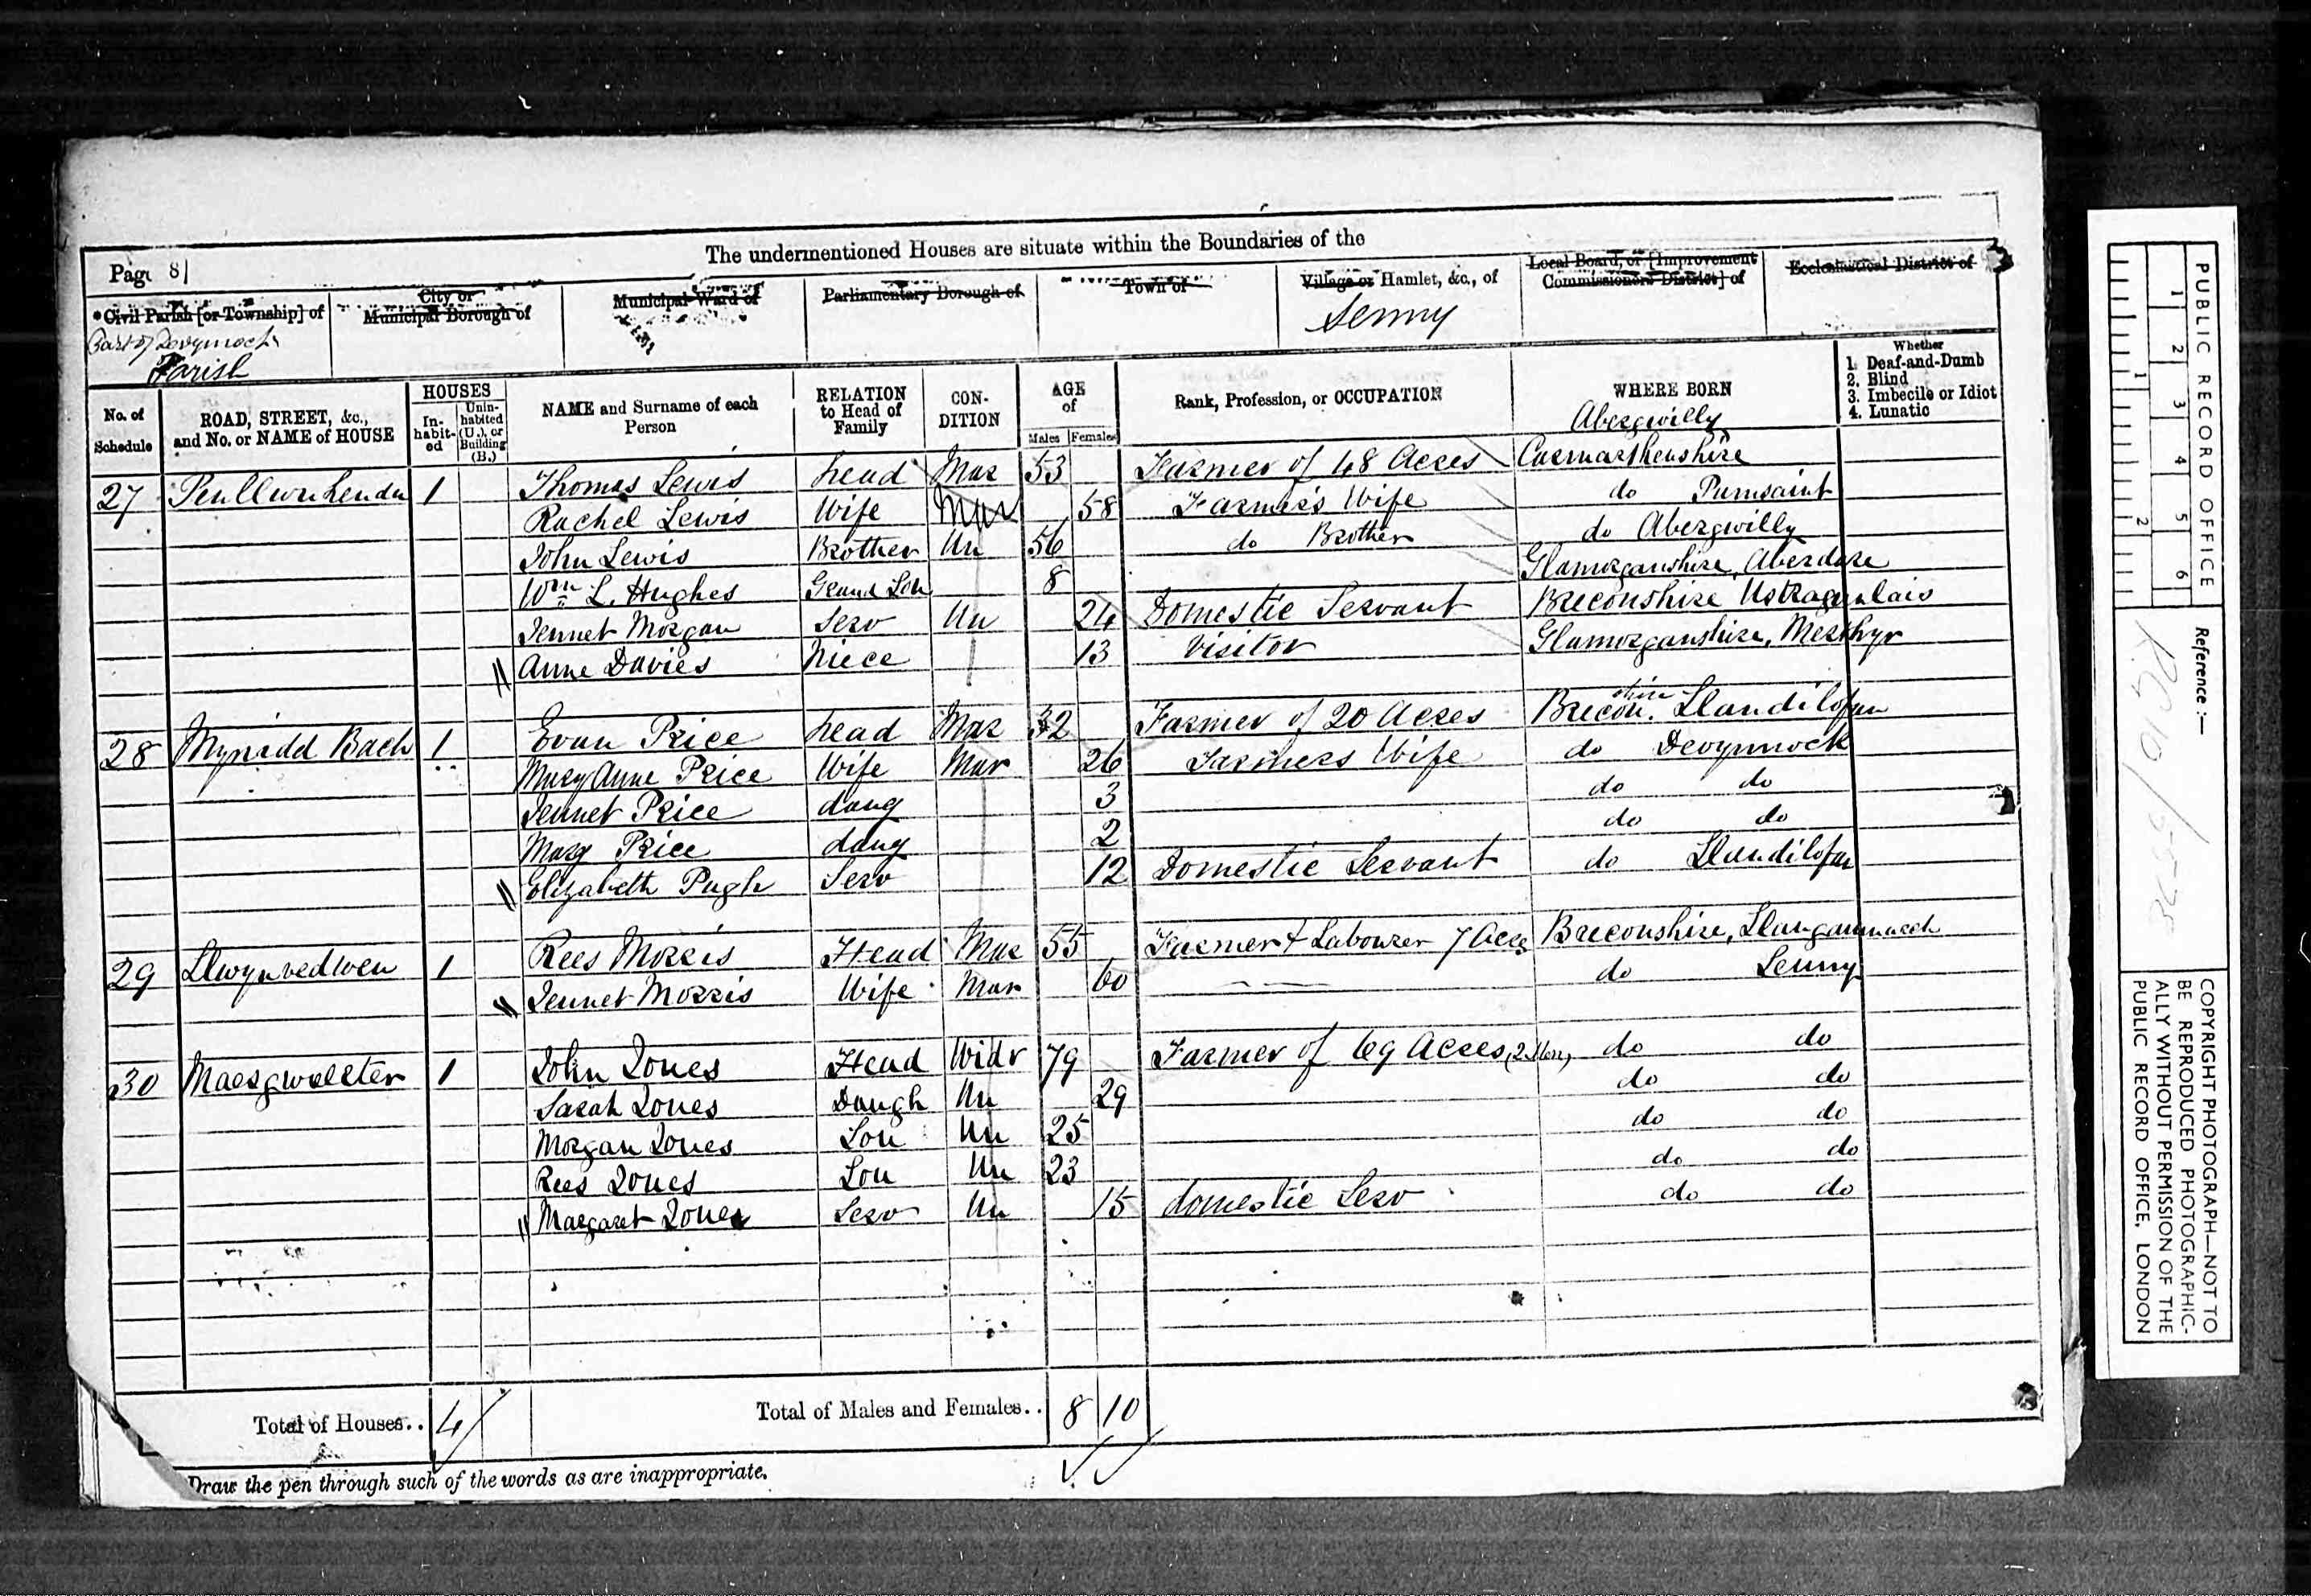 The undermentioned Houses are situate within the Boundaries of the
Page 8
Civil Parish [or Township] of
City or Municipal Borough of
Municipal Ward of
Parliamentary Borough of
Town of
Village or Hamlet, &c., of
Local Board, or [Improvement Commissioners District] of
Ecclesiastical District of
Part of Devynnock
Parish
Senny
No. of Schedule
ROAD, STREET, &c., and No. or NAME of HOUSE
HOUSES
In-habit-ed
Unin-habited (U.), or Building (B.)
NAME and Surname of each Person
RELATION to Head of Family
CON-DITION
AGE of
Males Females
Rank, Profession, or OCCUPATION
WHERE BORN
Whether
1. Deaf-and-Dumb
2. Blind
3. Imbecile or Idiot
4. Lunatic
Abergwilly
27 1 Thomas Lewis head Mar 53 Farmer of 48 Acres Carmarthenshire
Rachel Lewis Wife Mar 58 Farmer's Wife do Pumsaint
John Lewis Brother Un 56 do Brother do Abergwilly
Wm L. Hughes Grand Son 8 Glamorganshire, Aberdare
Jennet Morgan Serv Un 24 Domestic Servant Breconshire
Anne Davies Niece 13 Visitor Glamorganshire, Merthyr
28 Mynidd Bach 1 Evan Price head Mar 32 Farmer of 20 Acres Brecon.shire Llandilofan
Mary Anne Price Wife Mar 26 Farmers Wife do Devynnock
Jennet Price daug 3 do do
Mary Price daug 2 do do
Elizabeth Pugh Serv 12 Domestic Servant do Llandilofan
29 Llwynvedwen 1 Rees Morris Head Mar 55 Farmer & Labourer 7 Acres Breconshire,
Jennet Morris Wife Mar 60 do Senny
30 1 John Jones Head Widr 79 Farmer of 69 Acres (2 Men) do do
Sarah Jones Daugh Un 29 do do
Morgan Jones Son Un 25 do do
Rees Jones Son Un 23 do do
Margaret Jones Serv Un 15 domestic Serv do do
Total of Houses.. 4
Total of Males and Females.. 8 10
Draw the pen through such of the words as are inappropriate.
PUBLIC RECORD OFFICE
1 2 3 4 5 6
1 2
Reference :—
COPYRIGHT PHOTOGRAPH—NOT TO
BE REPRODUCED PHOTOGRAPHIC-
ALLY WITHOUT PERMISSION OF THE
PUBLIC RECORD OFFICE, LONDON